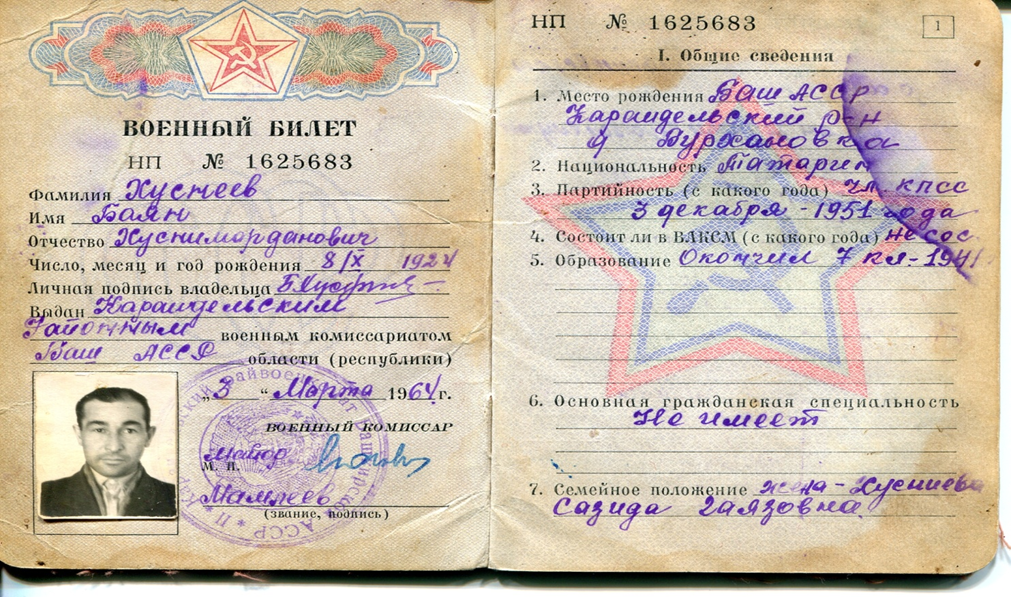 ВОЕННЫЙ БИЛЕТ
НП № 1625683
Фамилия Хуснеев
Имя Баян
Отчество Хуснимарданович
Число, месяц и год рождения 8/IX 1924
Личная подпись владельца
Выдан Караидельским
Районным военным комиссариатом
Баш АССР области (республики)
„3“ Марта 1964 г.
ВОЕННЫЙ КОМИССАР
майор
М. П.
(звание, подпись)
НП № 1625683
1
I. Общие сведения
1. Место рождения Баш АССР
Караидельский р-н
д Бурхановка
2. Национальность Татарин
3. Партийность (с какого года) чл. КПСС
3 декабря - 1951 года
4. Состоит ли в ВЛКСМ (с какого года) не сос.
5. Образование Окончил 7 кл - 1941
6. Основная гражданская специальность
Не имеет
7. Семейное положение жена - Хусниева
Сазида Гаязовна.